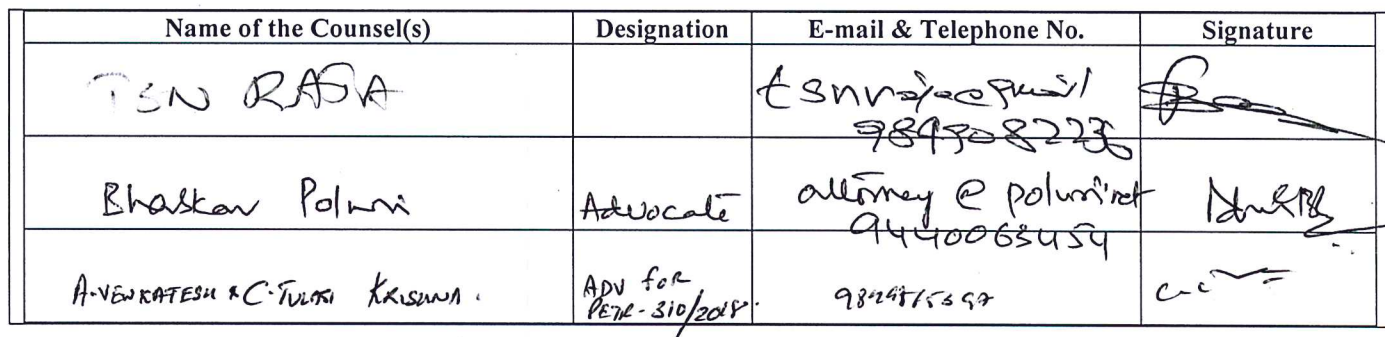 Name of the Counsel(s) Designation E-mail & Telephone No. Signature
TSN RAJA
Bhaskar Poluri Advocate attorney @ poluri.net
9440063454
A. VENKATESH & C. TULASI KRISHNA. ADV FOR
PETR - 310/2018.